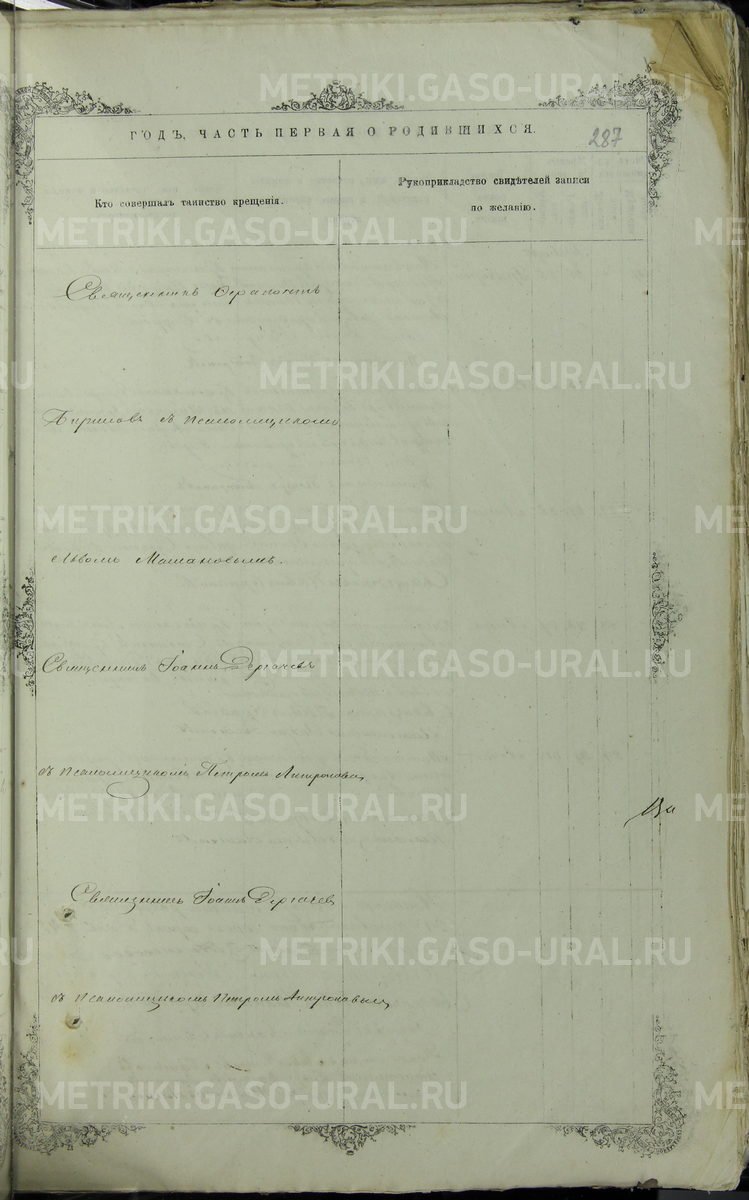 METRIKI.GASO-URAL.RU
ГОДЪ, ЧАСТЬ ПЕРВАЯ О РОДИВШИХСЯ.
287
Кто совершалъ таинство крещенія.
Рукоприкладство свидѣтелей записи
по желанію.
METRIKI.GASO-URAL.RU
Священникъ
METRIKI.GASO-URAL.RU
съ псаломщикомъ
METRIKI.GASO-URAL.RU
Львомъ
Священникъ Іоаннъ Дергачевъ
METRIKI.GASO-URAL.RU
съ псаломщикомъ Петромъ
METRIKI.GASO-URAL.RU
Священникъ Іоаннъ Дергачев
METRIKI.GASO-URAL.RU
съ псаломщикомъ Петромъ
METRIKI.GASO-URAL.RU